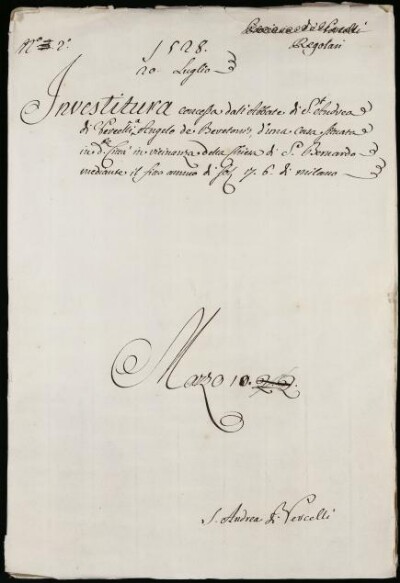 N.º 2º.
Regolari
1528.
20 Luglio
Investitura concessa dall'Abbate di S.t Andrea
di Vercelli a Angelo de Bevetono, d'una casa situata
in d.ª Città in vicinanza della Chiesa di S.n Bernardo
mediante il fitto annuo di sol. 6. di milano
Mazzo 10.
S. Andrea di Vercelli